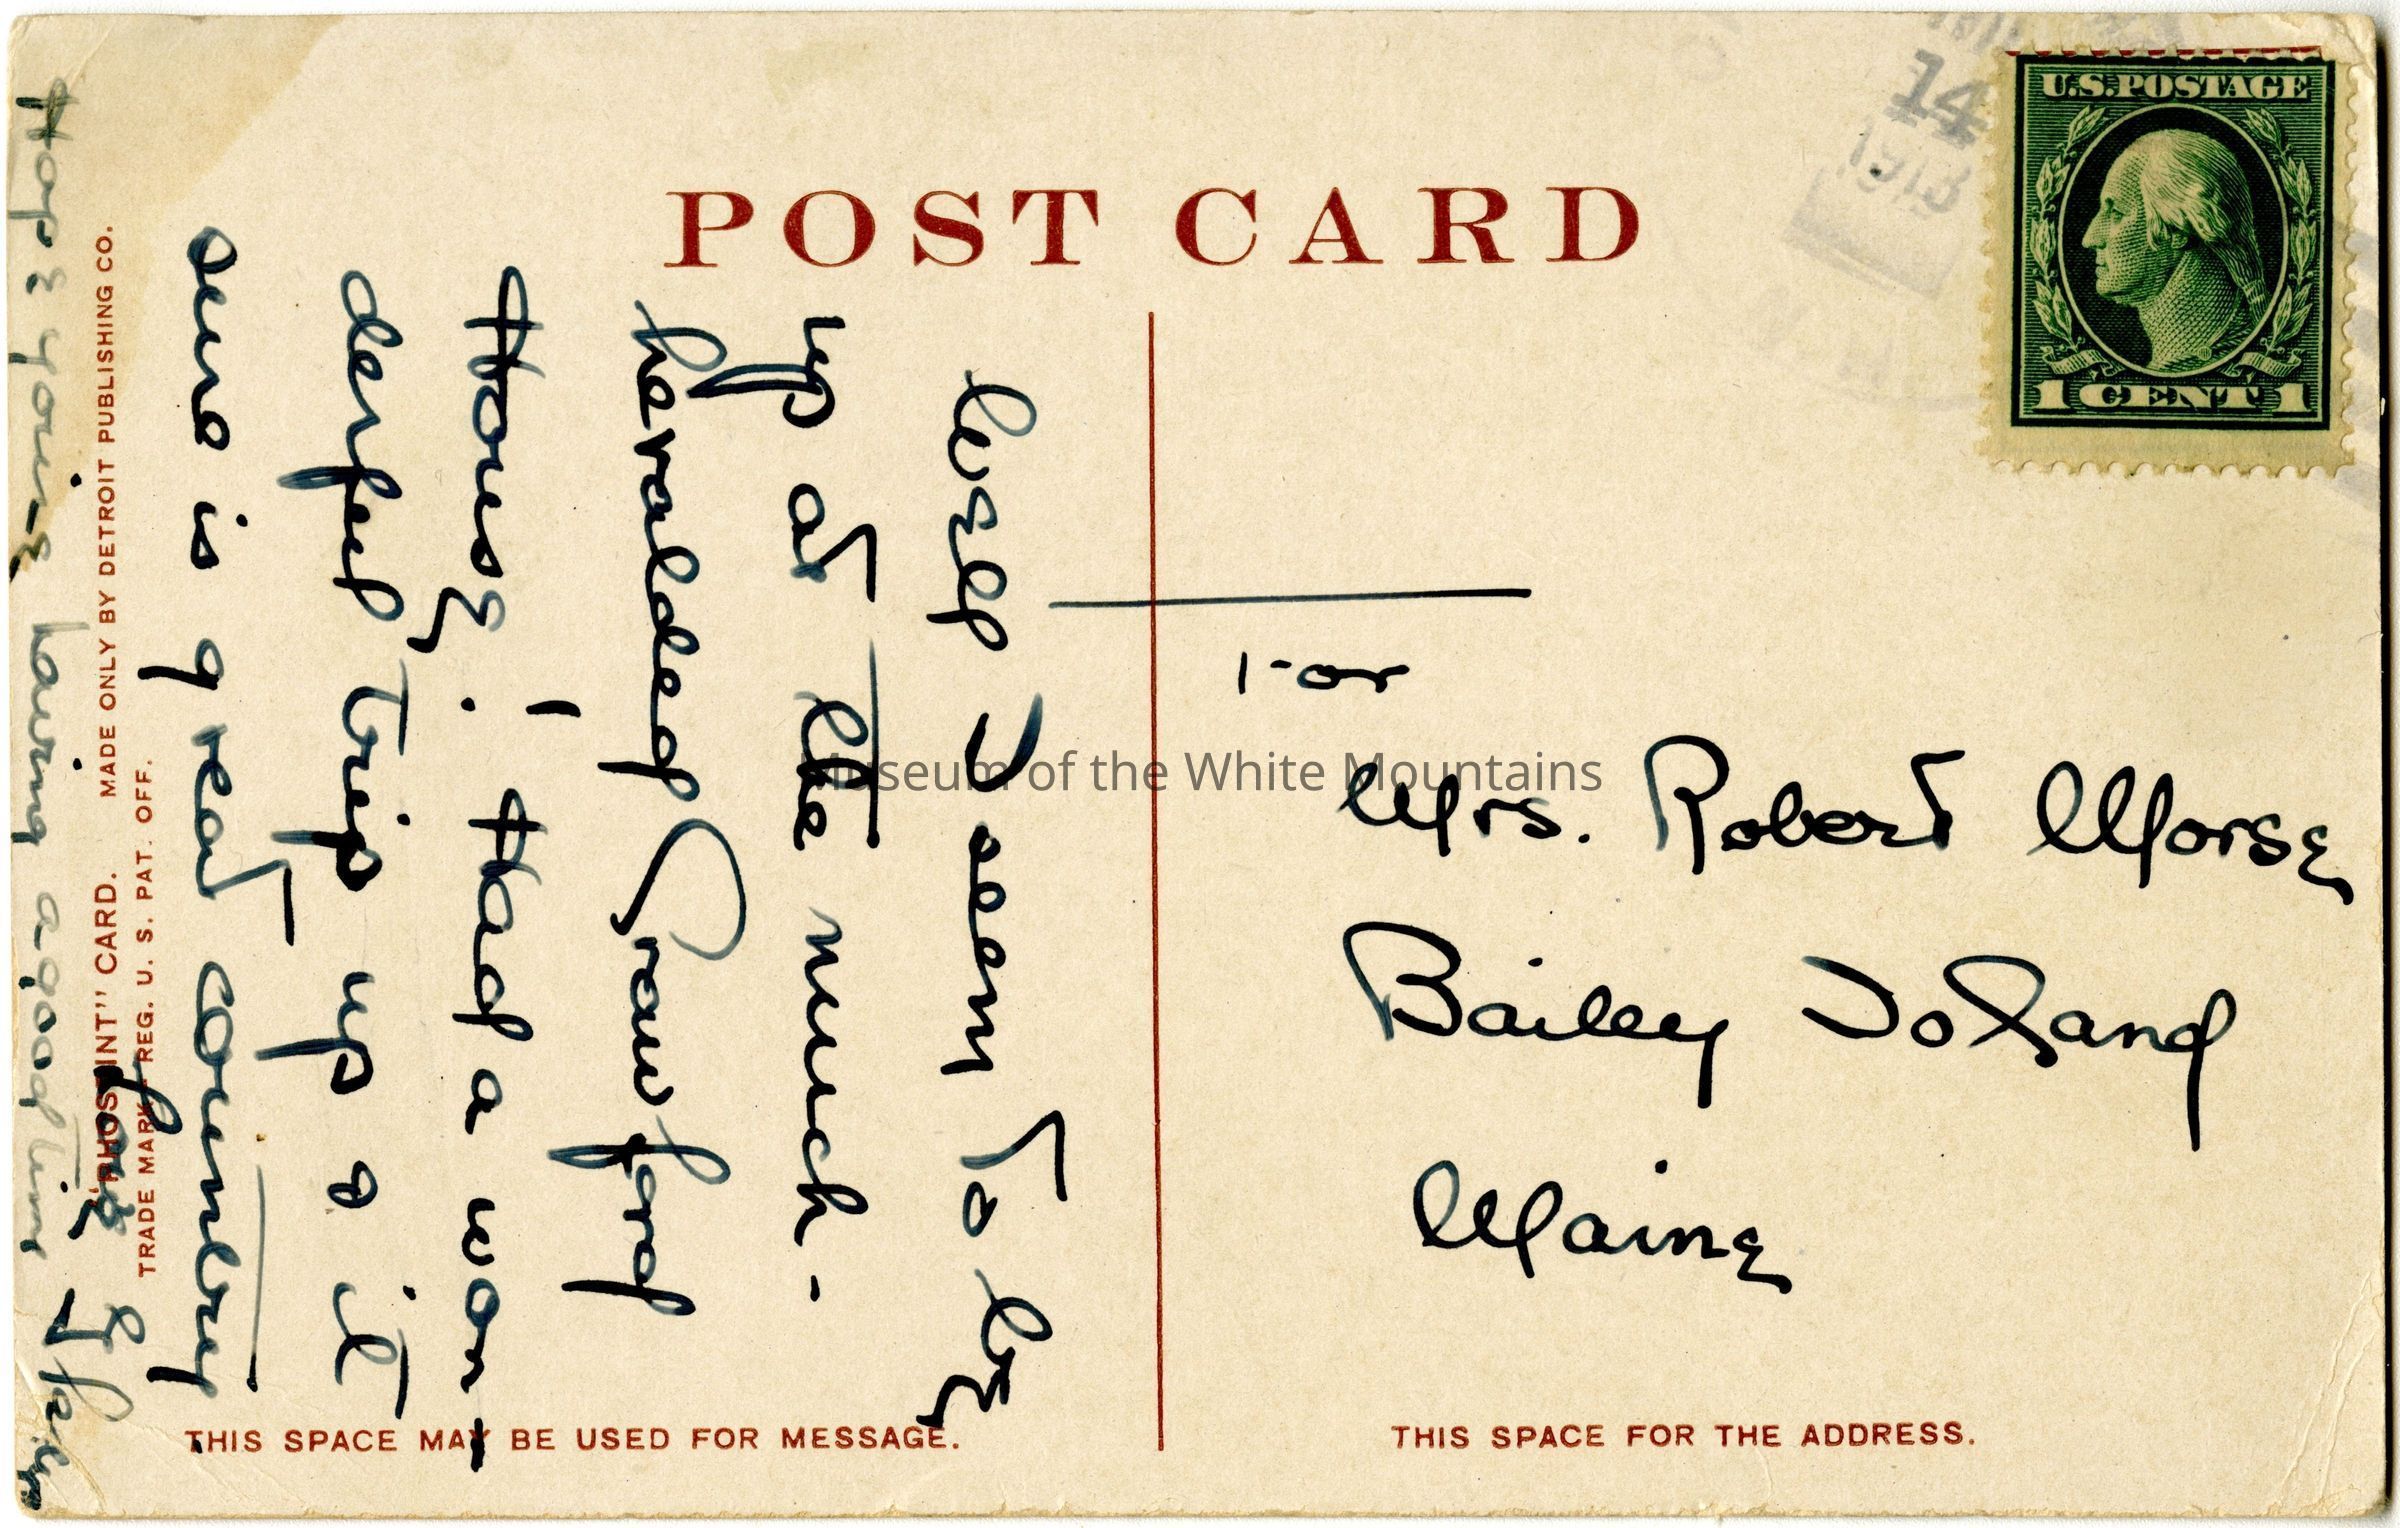 POST CARD
14
1913
U.S. POSTAGE
1 CENT 1
Well I seem to be
up at the much-
heralded Crawford
House. Had a won-
derful trip up & it
sure is great country
Hope you're having a good time
Love
For
Mrs. Robert Morse
Bailey Island
Maine
"PHOSTINT" CARD. MADE ONLY BY DETROIT PUBLISHING CO.
TRADE MARK REG. U. S. PAT. OFF.
THIS SPACE MAY BE USED FOR MESSAGE.
THIS SPACE FOR THE ADDRESS.
Museum of the White Mountains